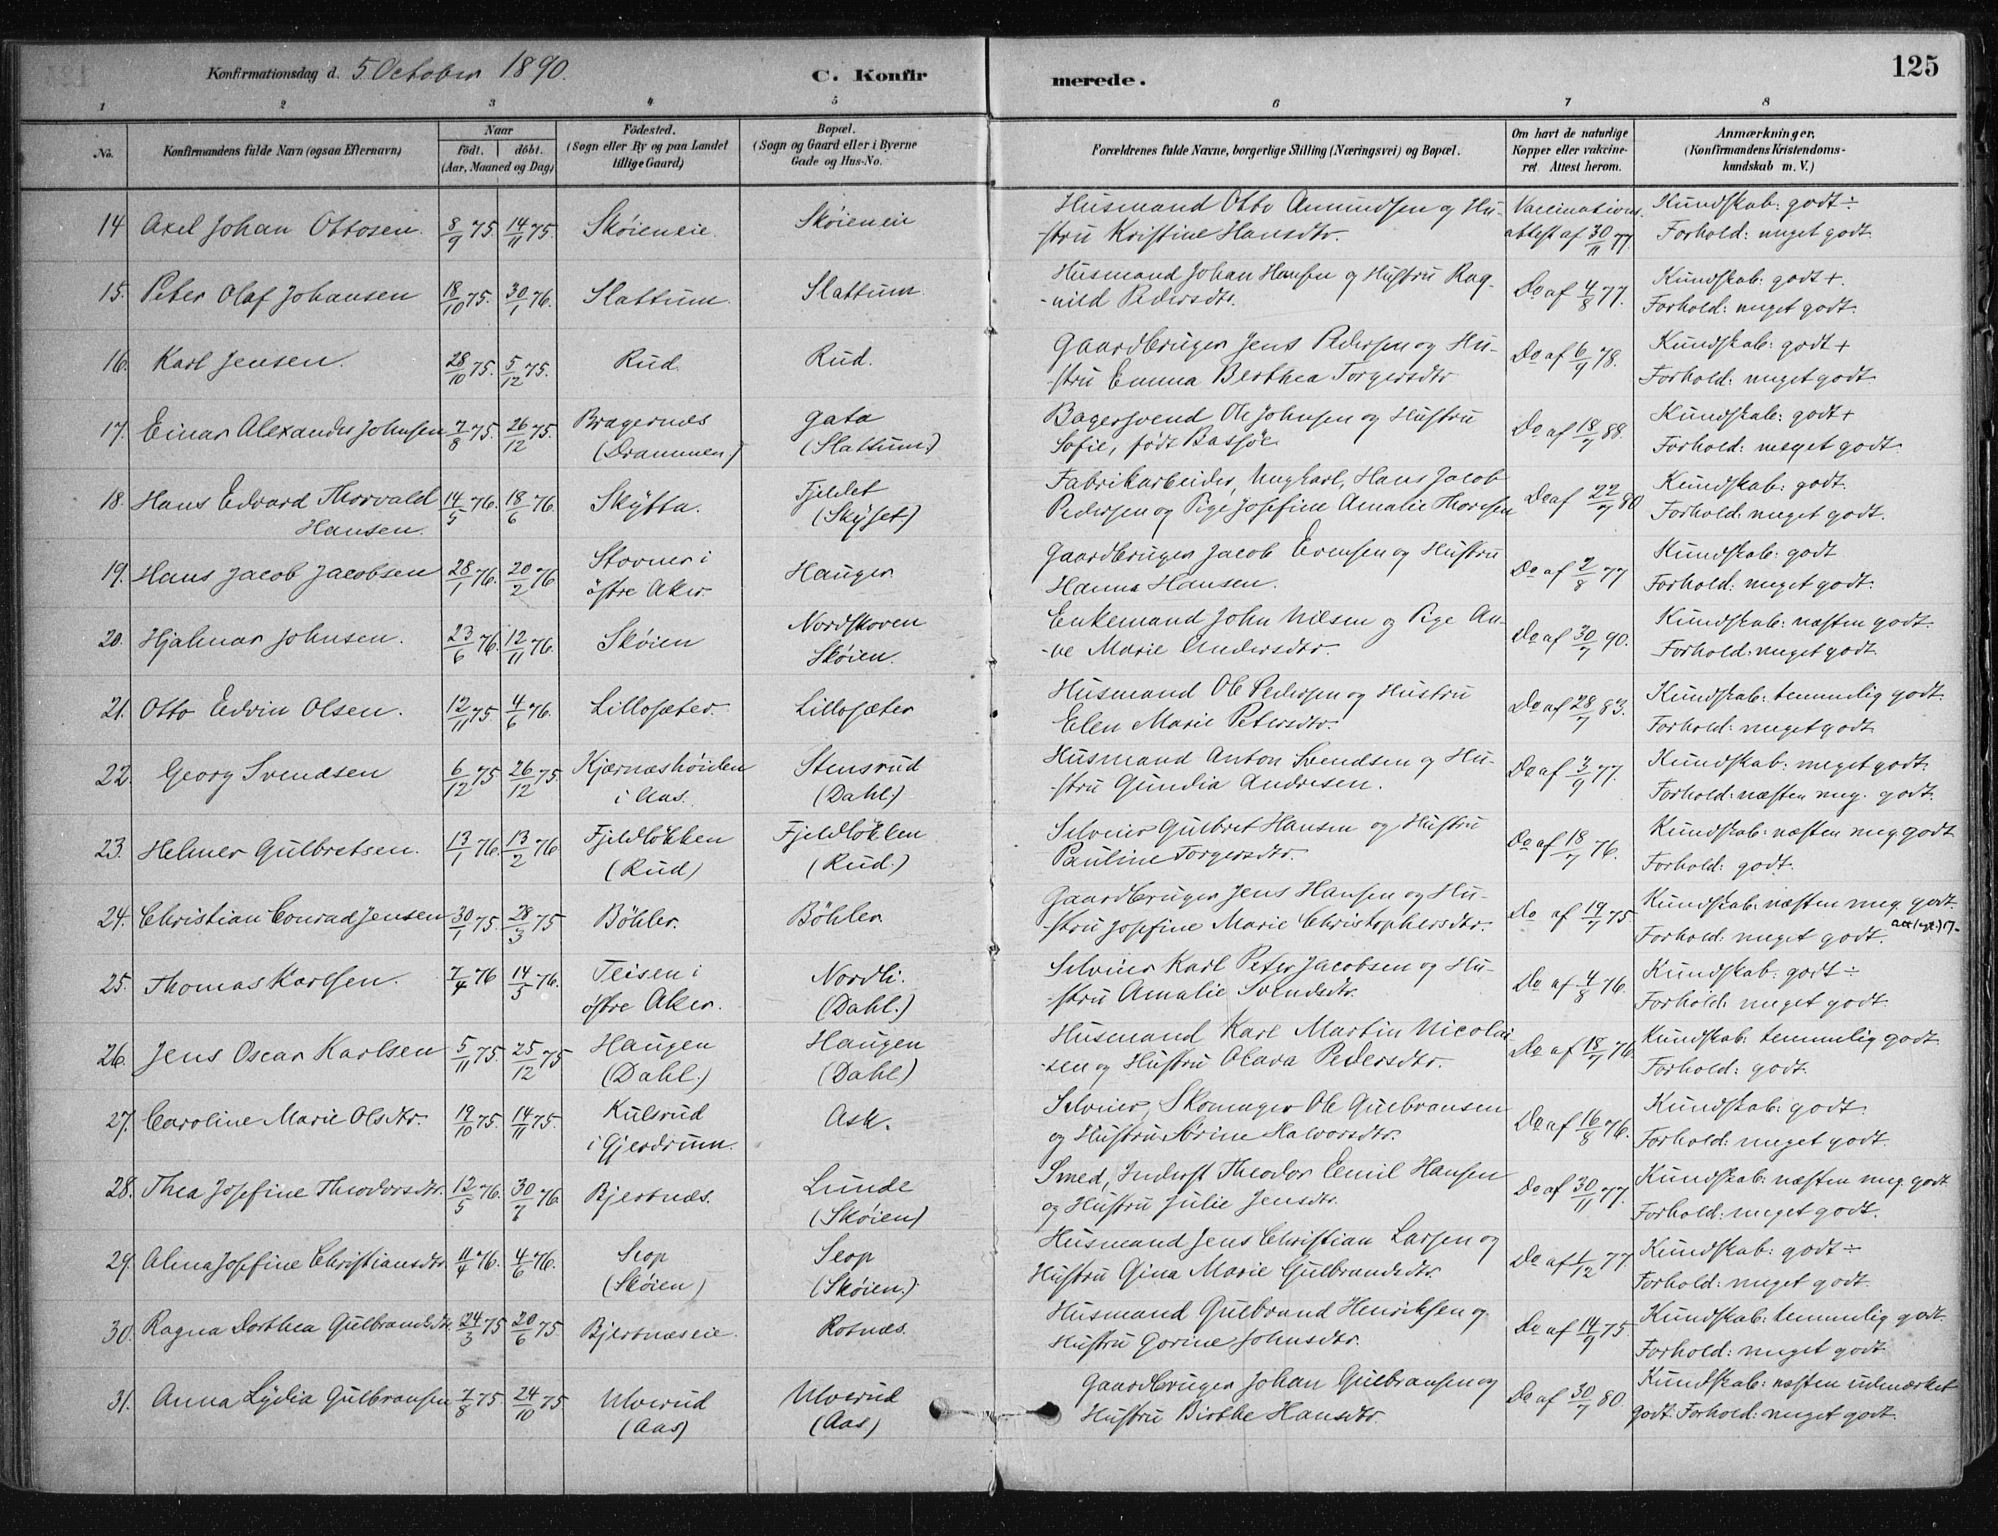 Konfirmationsdag d. 5 October 1890.
C. Konfirmerede.
125
1 2 3 4 5 6 7 8
No.
Konfirmandens fulde Navn (ogsaa Efternavn)
Naar
födt. döbt.
(Aar, Maaned og Dag)
Födested.
(Sogn eller By og paa Landet
tillige Gaard)
Bopæl.
(Sogn og Gaard eller i Byerne
Gade og Hus-No.
Forældrenes fulde Navne, borgerlige Stilling (Næringsvei) og Bopæl.
Om havt de naturlige
Kopper eller vakcine-
ret. Attest herom.
Anmærkninger.
(Konfirmandens Kristendoms-
kundskab m. V.)
14 Axel Johan Ottosen. 8/9 75. 14/11 75. Skøieneie. Skøieneie
Husmand Otto Amundsen og Hu-
stru Kristine Hansdtr.
Vaccinations.
attest af 30/11 77.
Kundskab: godt ÷
Forhold: meget godt.
15. Peter Olaf Johansen 18/10 75. 30/1 76. Slattum. Slattum.
Husmand Johan Hansen og Hustru Rag-
-nild Pedersdtr.
Do af 4/8 77.
Kundskab: godt +.
Forhold: meget godt.
16. Karl Jensen. 28/10 75. 5/12 75. Rud. Rud.
Gaardbruger Jens Pedersen og Hu-
-stru Emma Berthea Torgersdtr
Do af 6/9 78.
Kundskab: godt +
Forhold: meget godt.
17. Einar Alexander Johnsen 7/8 75. 26/12 75. Bragernæs
(Drammen)
Gata
(Slattum.)
Bagersvend Ole Johnsen og Hustru
Sofie, født Bassøe
Do af 18/7 88.
Kundskab: godt +
Forhold: meget godt.
18. Hans Edvard Thorvald
Hansen. 14/5 76. 18/6 76. Skÿtta. Fjeldet
(Skÿset)
Fabrikarbeider, Ungkarl, Hans Jacob
Pedersen og Pige Josefine Amalie Thoresen
Do af 22/7 80
Kundskab: godt.
Forhold: meget godt.
19. Hans Jacob Jacobsen 28/1 76. 20/2 76 Stovner i
østre Aker. Hauger
Gaardbruger Jacob Evensen og Hustru
Hanna Hansen.
Do af 2/8 77
Kundskab: godt
Forhold: meget godt.
20. Hjalmar Johnsen. 23/6 76. 12/11 76. Skøien Nordskoven
Skøien.
Enkemand John Nilsen og Pige An-
-ne Marie Andersdtr.
Do af 30/7 90.
Kundskab: næsten godt.
Forhold: meget godt.
21. Otto Edvin Olsen. 12/11 75. 4/6 76. Lillosæter. Lillosæter
Husmand Ole Pedersen og Hustru
Elen Marie Petersdtr.
Do af 28/7 83.
Kundskab: temmelig godt.
Forhold: meget godt.
22. Georg Svendsen 6/12 75 26/12 75 Kjærneshøiden
i Aas. Stensrud
(Dahl.)
Husmand Anton Svendsen og Hu-
stru Gundia Andresen.
Do af 3/9 77.
Kundskab: meget godt.
Forhold: næsten meg. godt.
23. Helmer Gulbretsen. 13/1 76. 13/2 76 Fjeldløkken
(Rud) Fjeldløkken
(Rud.)
Selveier Gulbret Hansen og Hustru
Pauline Torgersdtr.
Do af 18/7 76.
Kundskab: næsten meg godt
Forhold: godt.
24. Christian Conrad Jensen 30/1 75 28/3 75 Bøhler. Bøhler.
Gaardbruger Jens Hansen og Hu-
-stru Josefine Marie Christophersdtr.
Do af 19/7 75
Kundskab: næsten meg. godt
Forhold: meget godt.
25. Thomas Karlsen. 7/4 76 14/5 76. Teisen i
østre Aker. Nordli.
(Dahl.)
Selveier Karl Peter Jacobsen og Hu-
-stru Amalie Svendsdtr.
Do af 4/8 76.
Kundskab: godt ÷
Forhold: meget godt.
26. Jens Oscar Karlsen 5/11 75. 25/12 75 Haugen
(Dahl.) Haugen
(Dahl)
Husmand Karl Martin Nicolai
-sen og Hustru Olava Pedersdtr.
Do af 18/7 76.
Kundskab: temmelig godt
Forhold: godt.
27. Caroline Marie Olsdtr. 19/10 75. 14/11 75. Kulsrud
i Gjerdrum. Ask.
Selveier, Skomager Ole Gulbransen
og Hustru Sørine Halvorsdtr.
Do af 16/8 76.
Kundskab: godt.
Forhold: meget godt.
28. Thea Josefine Theodorsdtr. 12/5 76. 30/7 76. Bjertnæs. Lunde
(Skøien)
Smed, Inderst Theodor Eemil Hansen
og Hustru Julie Jensdtr.
Do af 30/11 77.
Kundskab: næsten meg. godt
Forhold: meget godt.
29. Alma Josefine Christiansdtr. 11/4 76. 4/6 76. Seop
(Skøien) Seop
(Skøien.)
Husmand Jens Christian Larsen og
Hustru Gina Marie Gulbrandsdtr.
Do af 1/12 77.
Kundskab: godt ÷
Forhold: meget godt.
30. Ragna Dorthea Gulbrandsdtr 24/3 75 20/6 75 Bjertnæseie. Rotnæs.
Husmand Gulbrand Henriksen og
Hustru Gorine Johnsdtr.
Do af 14/9 75.
Kundskab: temmelig godt.
Forhold: meget godt
31. Anna Lÿdia Gulbransen 7/8 75. 24/10 75 Ulverud
(Aas) Ulverud
(Aas)
Gaardbruger Johan Gulbransen og
Hustru Birthe Hansdtr.
Do af 30/7 80.
Kundskab: næsten udmærket
godt. Forhold: meget godt.